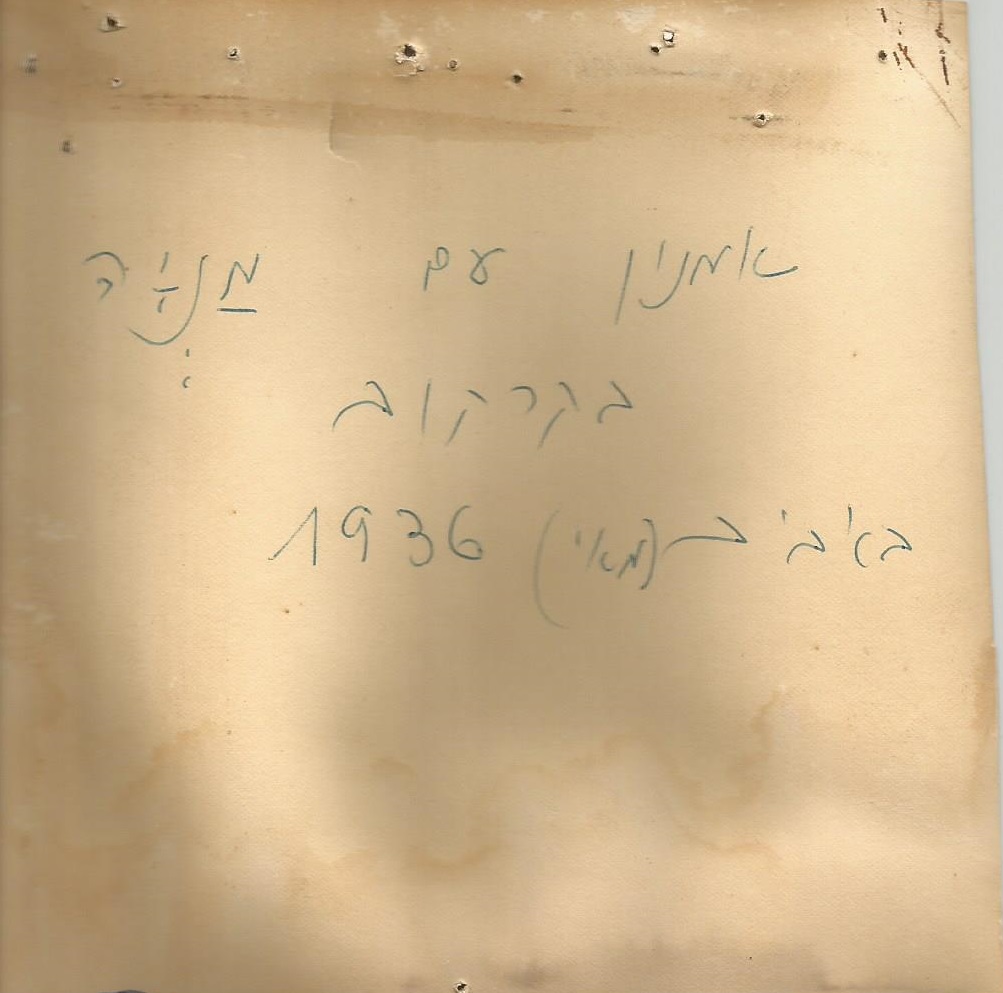 אמנון עם מַנְיָה
בקרקוב
באביב (מאי) 1936